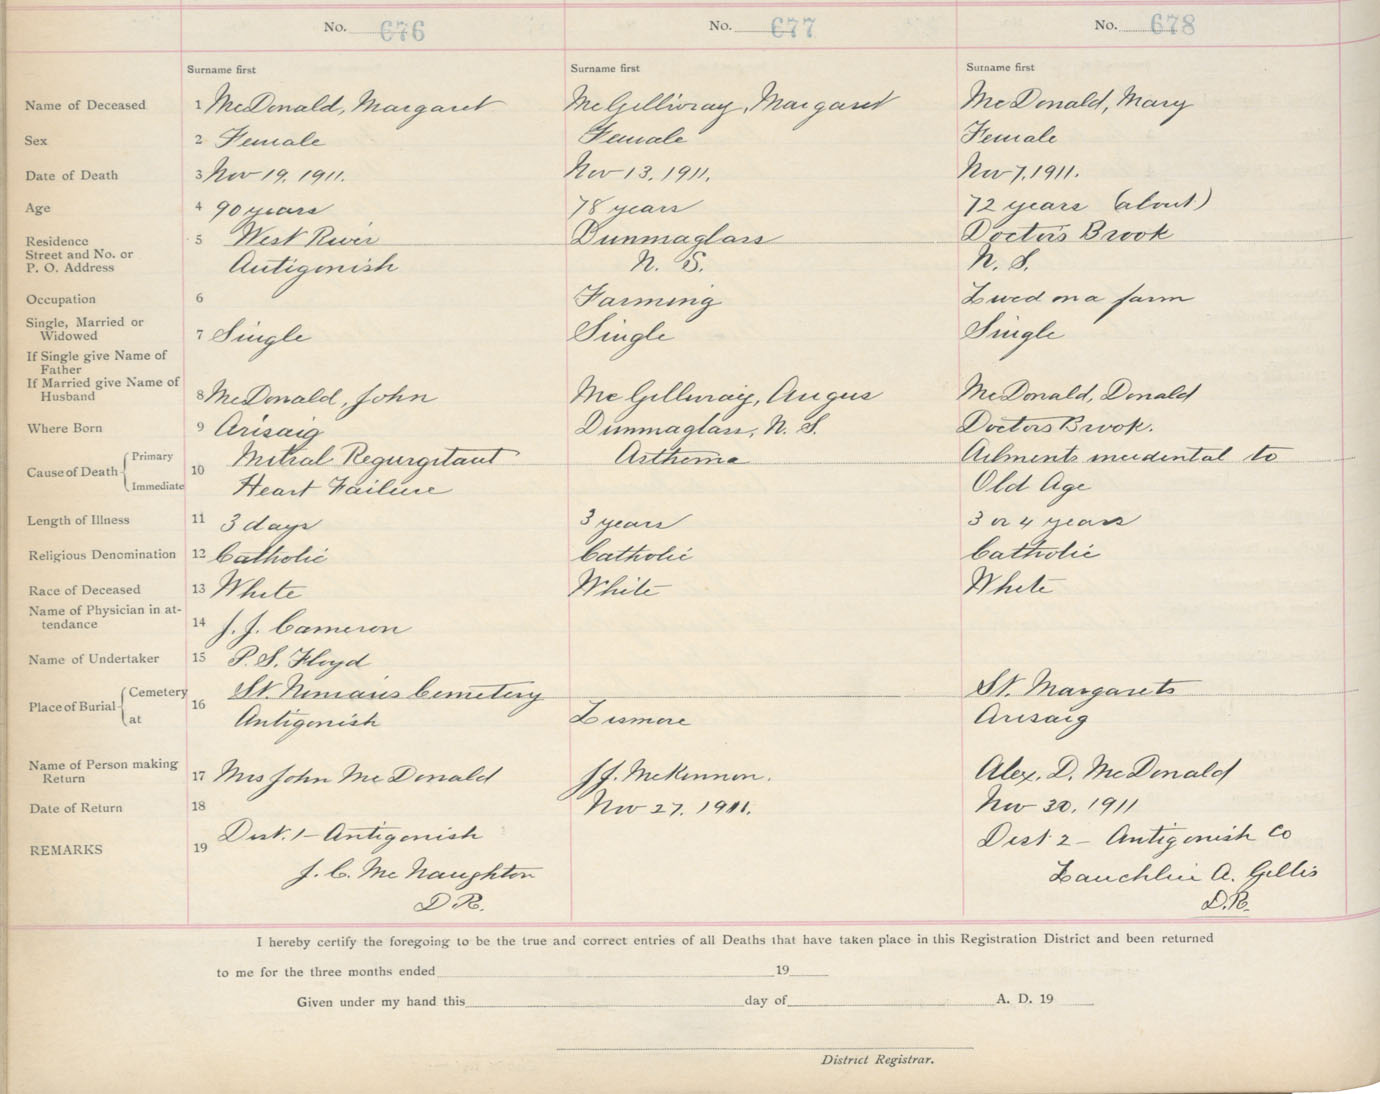 No. 676 No. 677 No. 678
Surname first Surname first Surname first
Name of Deceased 1 McDonald, Margaret McGillivray, Margaret McDonald, Mary
Sex 2 Female Female Female
Date of Death 3 Nov 19, 1911. Nov 13, 1911. Nov 7, 1911.
Age 4 90 years 78 years 72 years (about)
Residence 5 West River Dunmaglass Doctors Brook
Street and No. or
P. O. Address Antigonish N. S. N. S.
Occupation 6 Farming Lived on a farm
Single, Married or
Widowed 7 Single Single Single
If Single give Name of
Father
If Married give Name of
Husband 8 McDonald, John McGillivray, Angus McDonald, Donald
Where Born 9 Arisaig Dunmaglass, N. S. Doctors Brook.
Cause of Death 10 Primary Mitral Regurgitant Asthma Ailments incidental to
Immediate Heart Failure Old Age
Length of Illness 11 3 days 3 years 3 or 4 years
Religious Denomination 12 Catholic Catholic Catholic
Race of Deceased 13 White White White
Name of Physician in at-
tendance 14 J. J. Cameron
Name of Undertaker 15 P. S. Floyd
Place of Burial 16 Cemetery St. Ninians Cemetery St. Margarets
at Antigonish Lismore Arisaig
Name of Person making
Return 17 Mrs John McDonald J. J. McKinnon. Alex. D. McDonald
Date of Return 18 Nov 27, 1911. Nov 30, 1911
REMARKS 19 Dist. 1 - Antigonish Dist 2 - Antigonish Co
J. C. McNaughton Lauchlin A. Gillis
D.R. D.R.
I hereby certify the foregoing to be the true and correct entries of all Deaths that have taken place in this Registration District and been returned
to me for the three months ended 19
Given under my hand this day of A. D. 19
District Registrar.